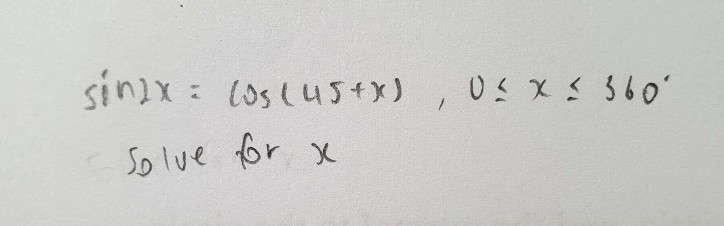 sin2x = cos(45+x) , 0 ≤ x ≤ 360°
Solve for x